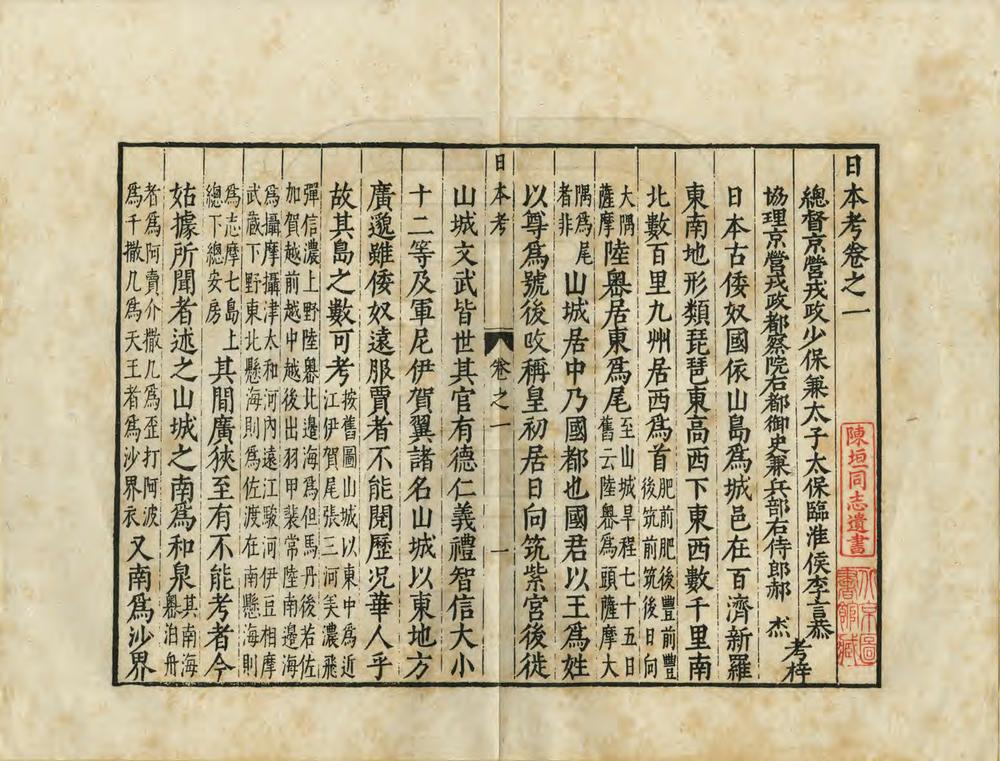 日本考卷之一
總督京營戎政少保兼太子太保臨淮侯李言恭
協理京營戎政都察院右都御史兼兵部右侍郎郝 杰
考梓
日本古倭奴國依山島爲城邑在百濟新羅
東南地形類琵琶東高西下東西數千里南
北數百里九州居西爲首肥前肥後豐前豐後筑前筑後日向
大隅薩摩陸奧居東爲尾至山城旱程七十五日舊云陸奧爲頭薩摩大
隅爲尾者非山城居中乃國都也國君以王爲姓
以尊爲號後改稱皇初居日向筑紫宮後徙
日本考 卷之一 一
山城文武皆世其官有德仁義禮智信大小
十二等及軍尼伊賀翼諸名山城以東地方
廣邈雖倭奴遠服賈者不能閱歷况華人乎
故其島之數可考按舊圖山城以東中爲近江伊賀尾張三河美濃飛
彈信濃上野陸奧北邊海爲但馬丹後若佐加賀越前越中越後出羽甲裴常陸南邊海
爲攝摩攝津太和河內遠江駿河伊豆相摩武蔵下野東北懸海則爲佐渡在南懸海則
爲志摩七島上總下總安房其間廣狹至有不能考者今
姑據所聞者述之山城之南爲和泉其南海奧泊舟
者爲阿賣介撒几爲歪打阿波爲千撒几爲天王者爲沙界衣又南爲沙界
陳垣同志遺書
北京圖書館藏